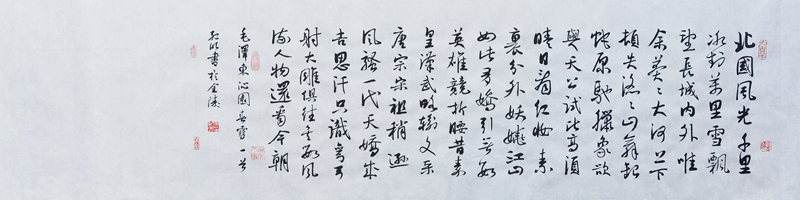 北國風光千里
冰封萬里雪飄
望長城内外唯
余莽々大河上下
頓失滔々山舞銀
蛇原馳臘象欲
與天公試比高須
晴日看紅妝素
裹分外妖嬈江山
如此多嬌引無數
英雄競折腰昔秦
皇漢武略輸文采
唐宗宋祖稍遜
風騷一代天驕成
吉思汗只識彎弓
射大雕俱往矣數風
流人物還看今朝
毛澤東沁園春雪一首
書於金陵